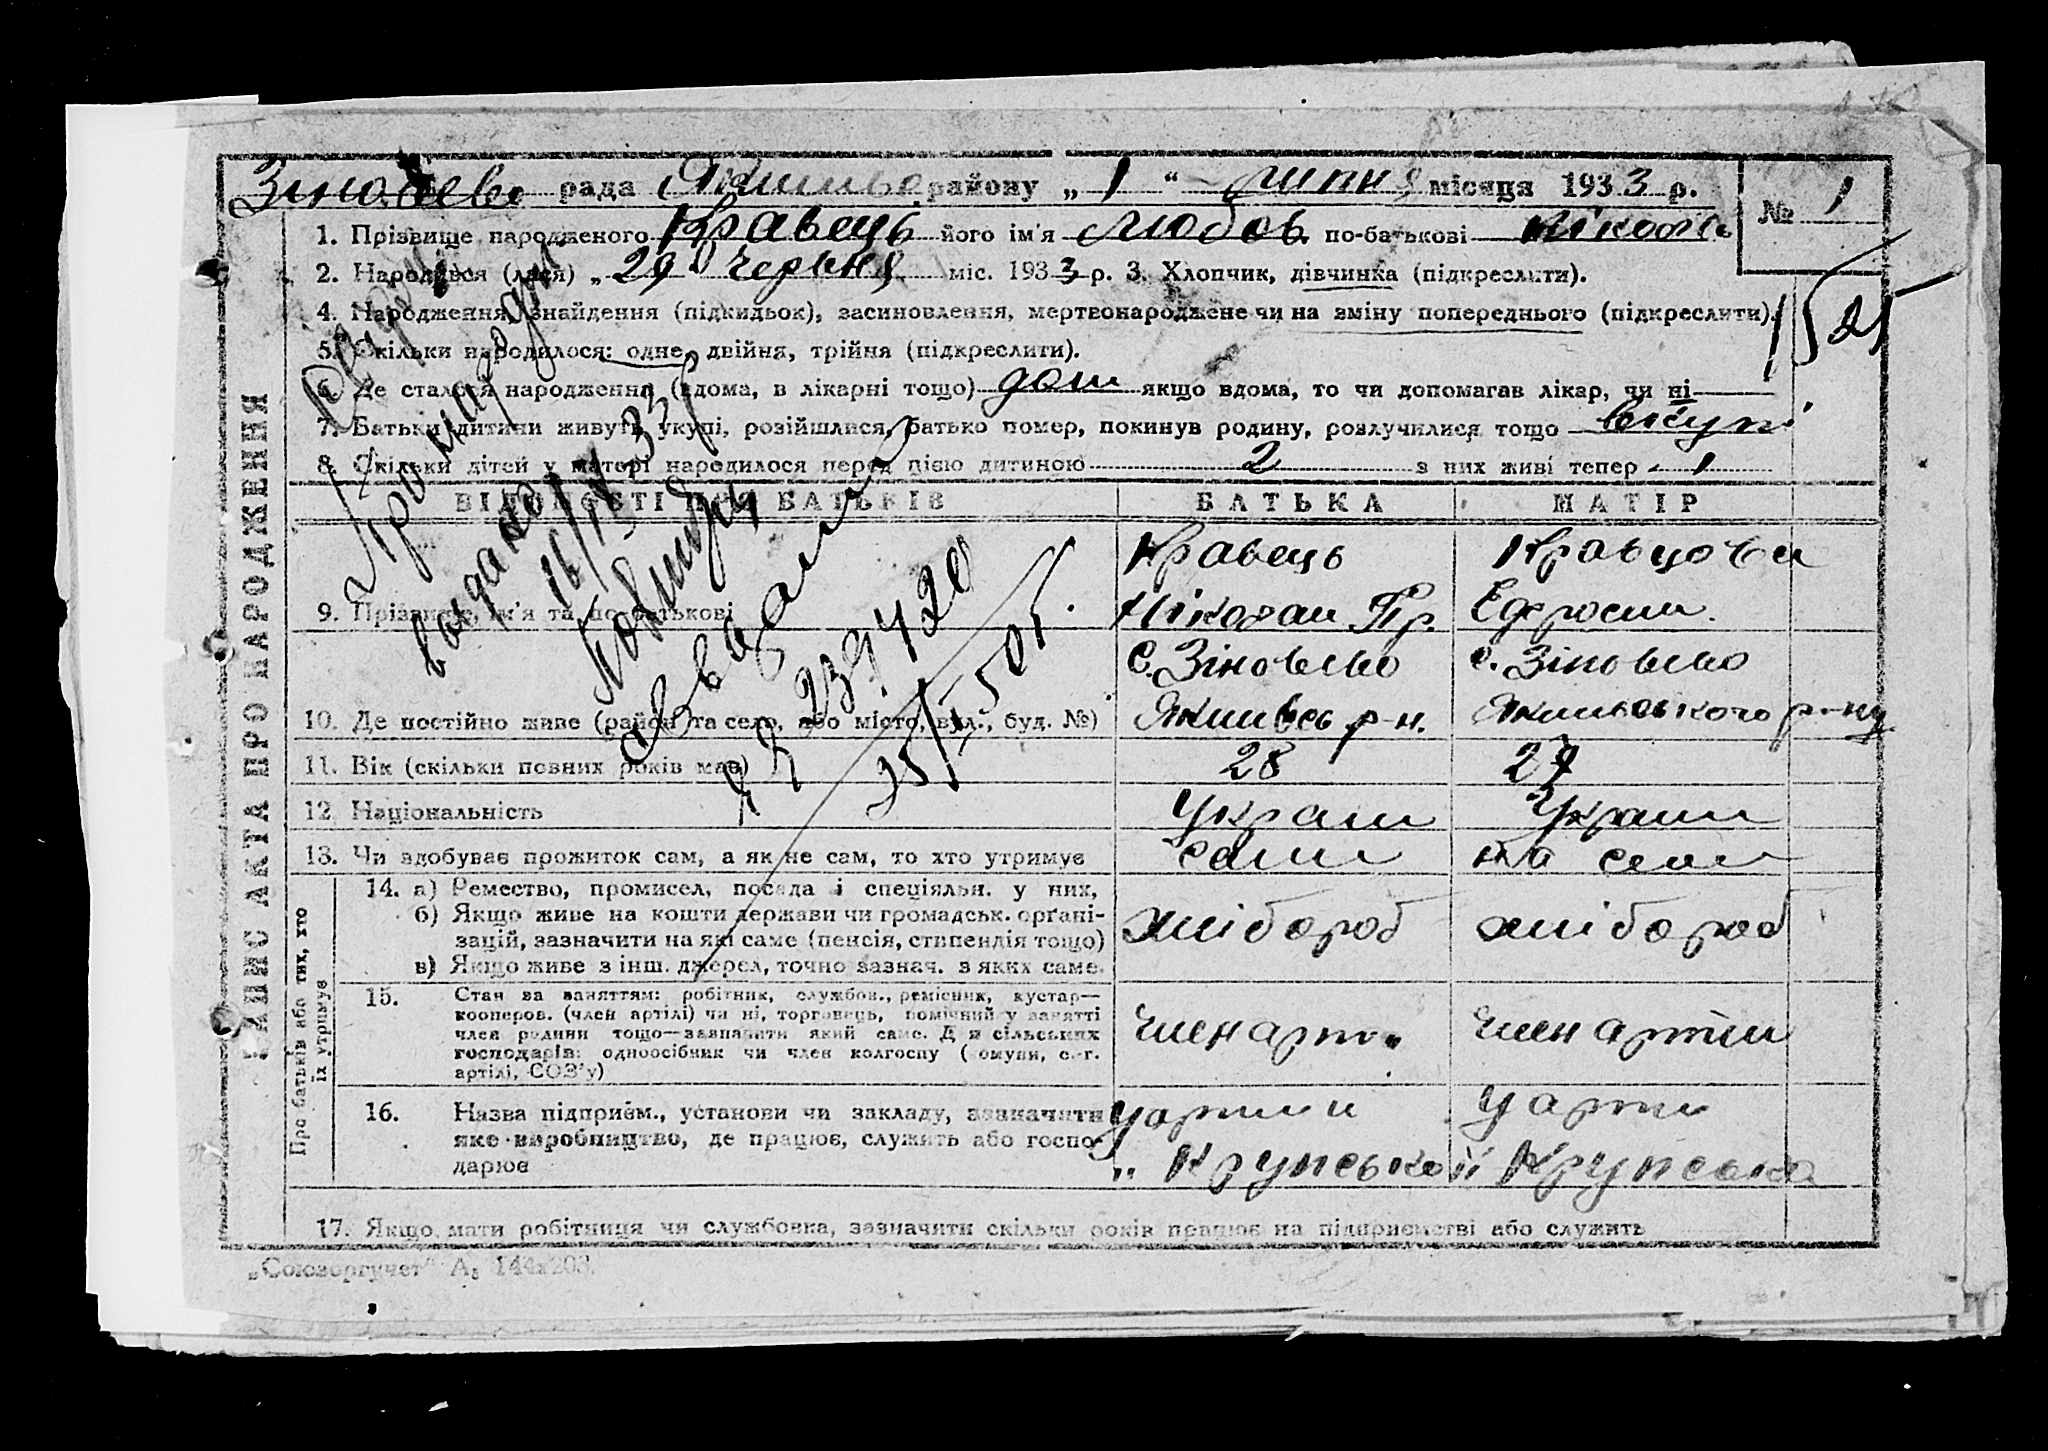 рада района „ 1 " липня місяця 1933 р.
№ 1
1. Прізвище народженого Кравець його ім'я Любов по-батькові
2. Народився (лася) „ 29 " червня міс. 1933 р. 3. Хлопчик, дівчинка (підкреслити).
4. Народження, знайдення (підкидьок), засиновлення, мертвонароджене чи на зміну попереднього (підкреслити).
5. Скільки народилося: одне, двійня, трійня (підкреслити).
6. Де сталося народження (вдома, в лікарні тощо) дом якщо вдома, то чи допомагав лікар, чи ні
7. Батьки дитини живуть укупі, розійшлися, батько помер, покинув родину, розлучилися тощо вкупі
8. Скільки дітей у матері народилося перед цією дитиною 2 з них живі тепер 1
ВІДОМОСТІ ПРО БАТЬКІВ БАТЬКА МАТІР
Кравець Кравцова
9. Прізвище, ім'я та по-батькові Ніколай Пр.
с. Зіновьево с. Зіновьево
10. Де постійно живе (район та село, або місто, вул., буд. №) р-н. р-ну
11. Вік (скільки повних років має) 28 27
12. Національність Украин Украин
13. Чи здобуває прожиток сам, а як не сам, то хто утримує сам
14. а) Ремество, промисел, посада і спеціяльн. у них,
б) Якщо живе на кошти держави чи громадськ. орґані-
зацій, зазначити на які саме (пенсія, стипендія тощо)
в) Якщо живе з інш. джерел, точно зазнач. з яких саме.
хлібороб хлібороб
15. Стан за заняттям: робітник, службов., ремісник, кустар—
кооперов. (член артілі) чи ні, торговець, помічний у занятті
член родини тощо—зазначити який саме. Для сільських
господарів: одноосібник чи член колгоспу (комуни, с.-г.
артілі, СОЗ'у)
член арт. член артил
16. Назва підприєм., установи чи закладу, зазначити
яке виробництво, де працює, служить або госпо-
дарює
у артили у арти
Крупсько Крупсько
17. Якщо мати робітниця чи службовка, зазначити скільки років працює на підприємстві або служить
ЗАПИС АКТА ПРО НАРОДЖЕННЯ
Про батьків або тих, хто
їх утримує
„Союзоргучет" А₅ 144х203.